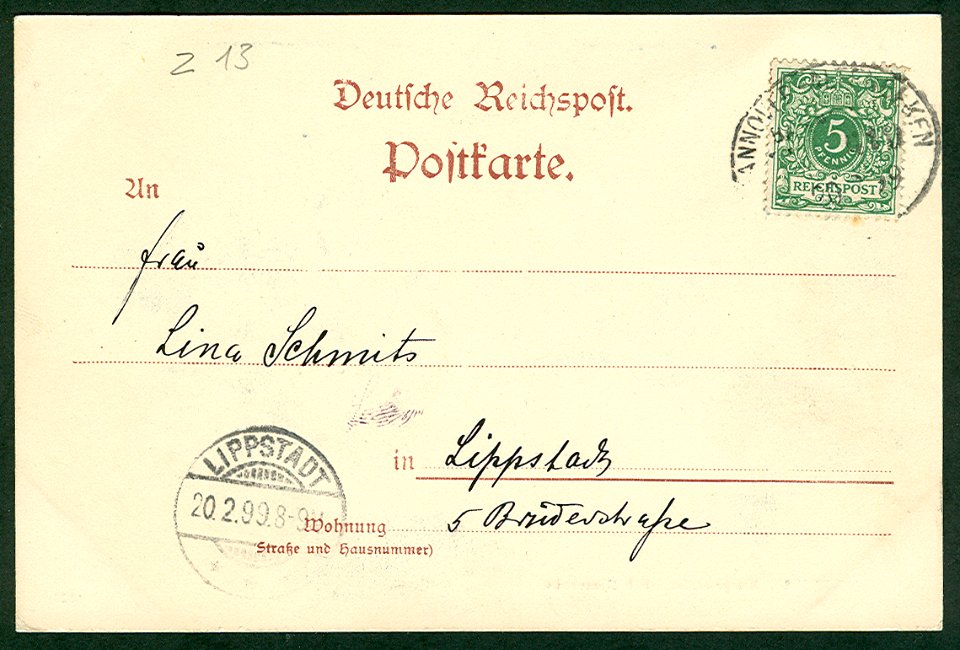 z 13
Deutsche Reichspost.
Postkarte.
5
PFENNIG
REICHSPOST
An
Frau
Lina Schmits
in Lippstadt
LIPPSTADT
20.2.99.8-9V.
Wohnung 5 Brüderstraße
(Straße und Hausnummer)